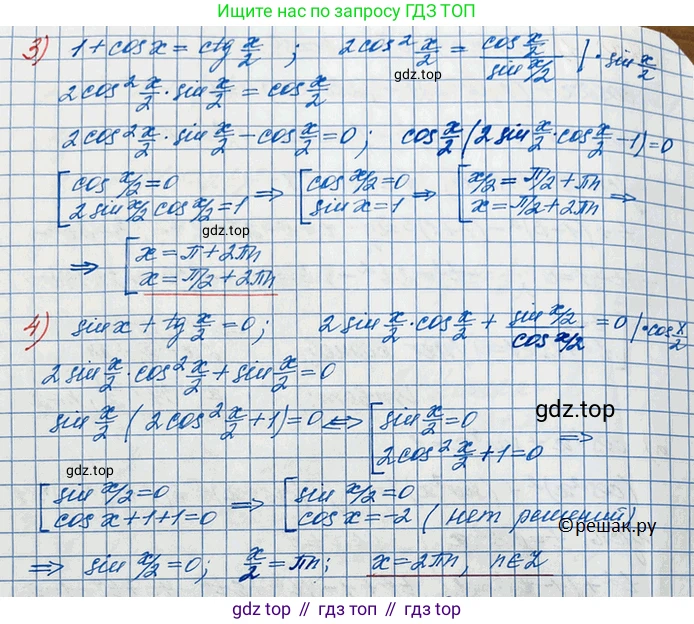 Ищите нас по запросу ГДЗ ТОП
3) 1 + cos x = ctg x/2 ; 2cos² x/2 = cos x/2 / sin x/2 | · sin x/2
gdz.top
2cos² x/2 · sin x/2 = cos x/2
2cos² x/2 · sin x/2 - cos x/2 = 0; cos x/2 (2 sin x/2 · cos x/2 - 1) = 0
[ cos x/2 = 0 ⇒ [ cos x/2 = 0 ⇒ [ x/2 = π/2 + πn ⇒
2 sin x/2 cos x/2 = 1 sin x = 1 x = π/2 + 2πn
gdz.top
⇒ [ x = π + 2πn
x = π/2 + 2πn
4) sin x + tg x/2 = 0; 2 sin x/2 · cos x/2 + sin x/2 / cos x/2 = 0 | · cos x/2
2 sin x/2 · cos² x/2 + sin x/2 = 0
sin x/2 ( 2cos² x/2 + 1) = 0 ⇔ [ sin x/2 = 0 ⇒
2cos² x/2 + 1 = 0
gdz.top
gdz.top
[ sin x/2 = 0 ⇒ [ sin x/2 = 0
cos x + 1 + 1 = 0 cos x = -2 (нет решений)
©решак.ру
⇒ sin x/2 = 0; x/2 = πn; x = 2πn, n∈Z
gdz.top // гдз.топ // gdz.top // гдз.топ